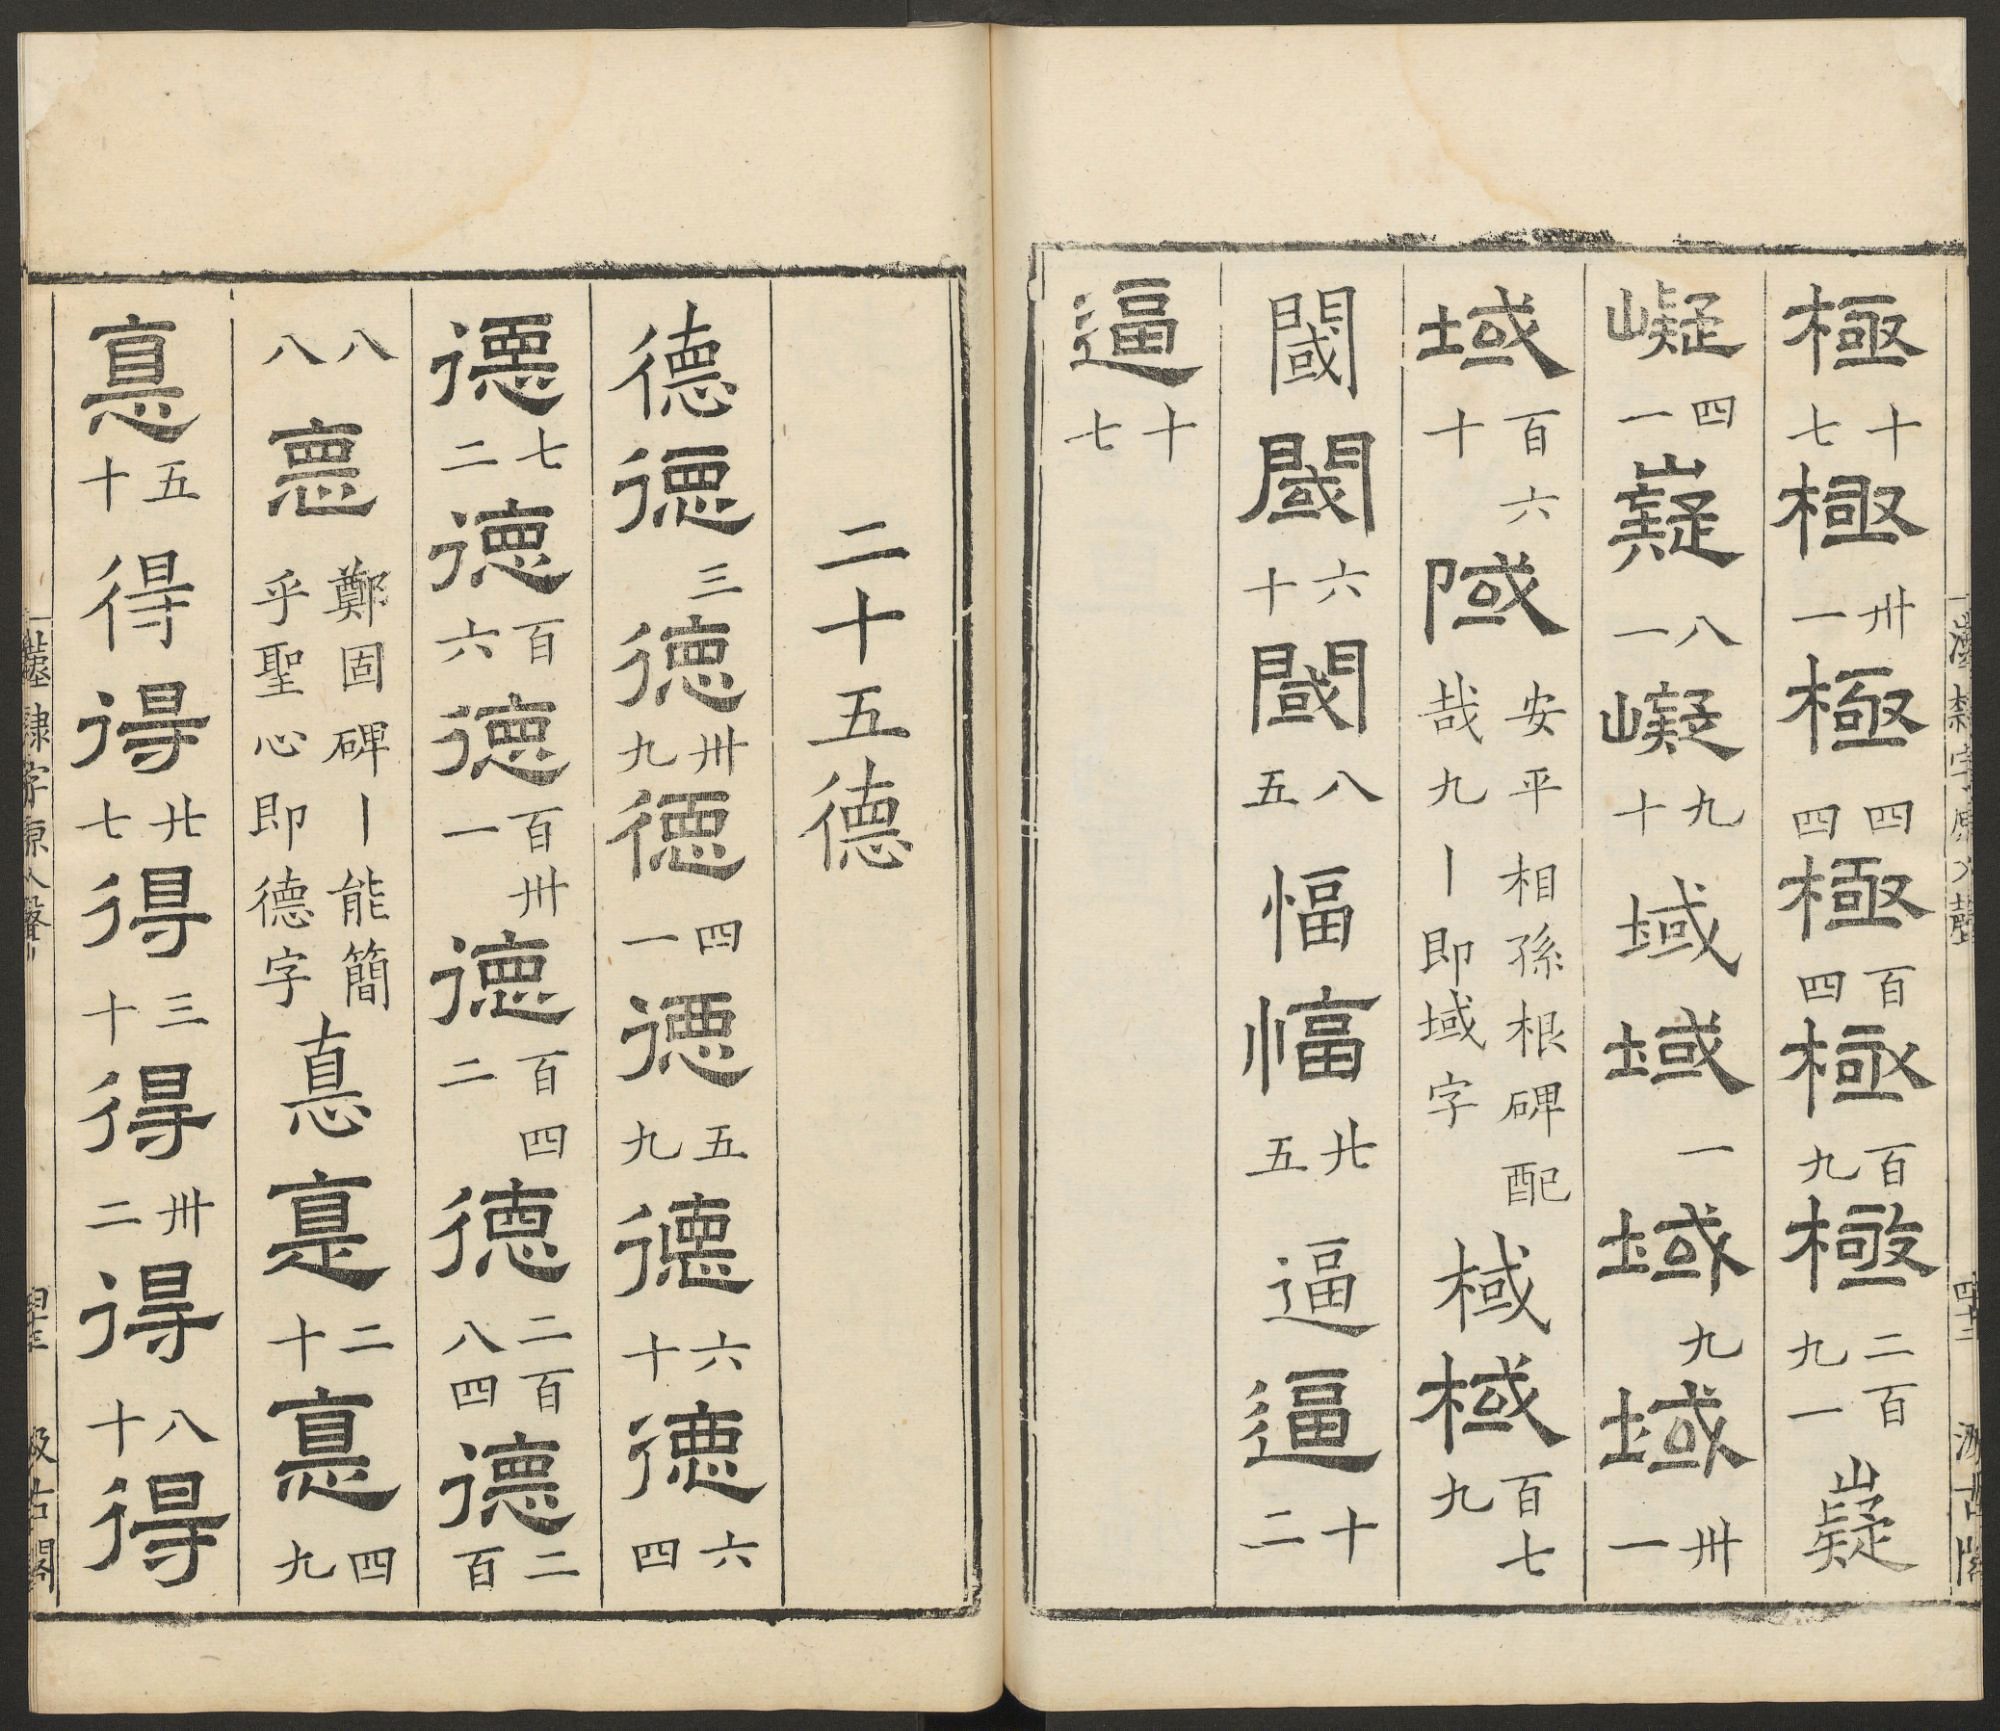 極十七極卅一極四四極百四極百九極二百九一嶷
嶷四一嶷八一嶷九十域域一域九域卅一
域百六十䧕安平相孫根碑配哉九丨即域字棫棫百七九
閾閾六十閾八五愊愊廿五逼逼十二
逼十七
二十五德
德德三德卅九德四一德五九德六十德六四
德七二德百六德百卅一德百四二德二百八四德二百
八八悳鄭固碑丨能簡乎聖心即德字悳悳二十悳四九
悳五十得得廿七得三十得卅二得八十得